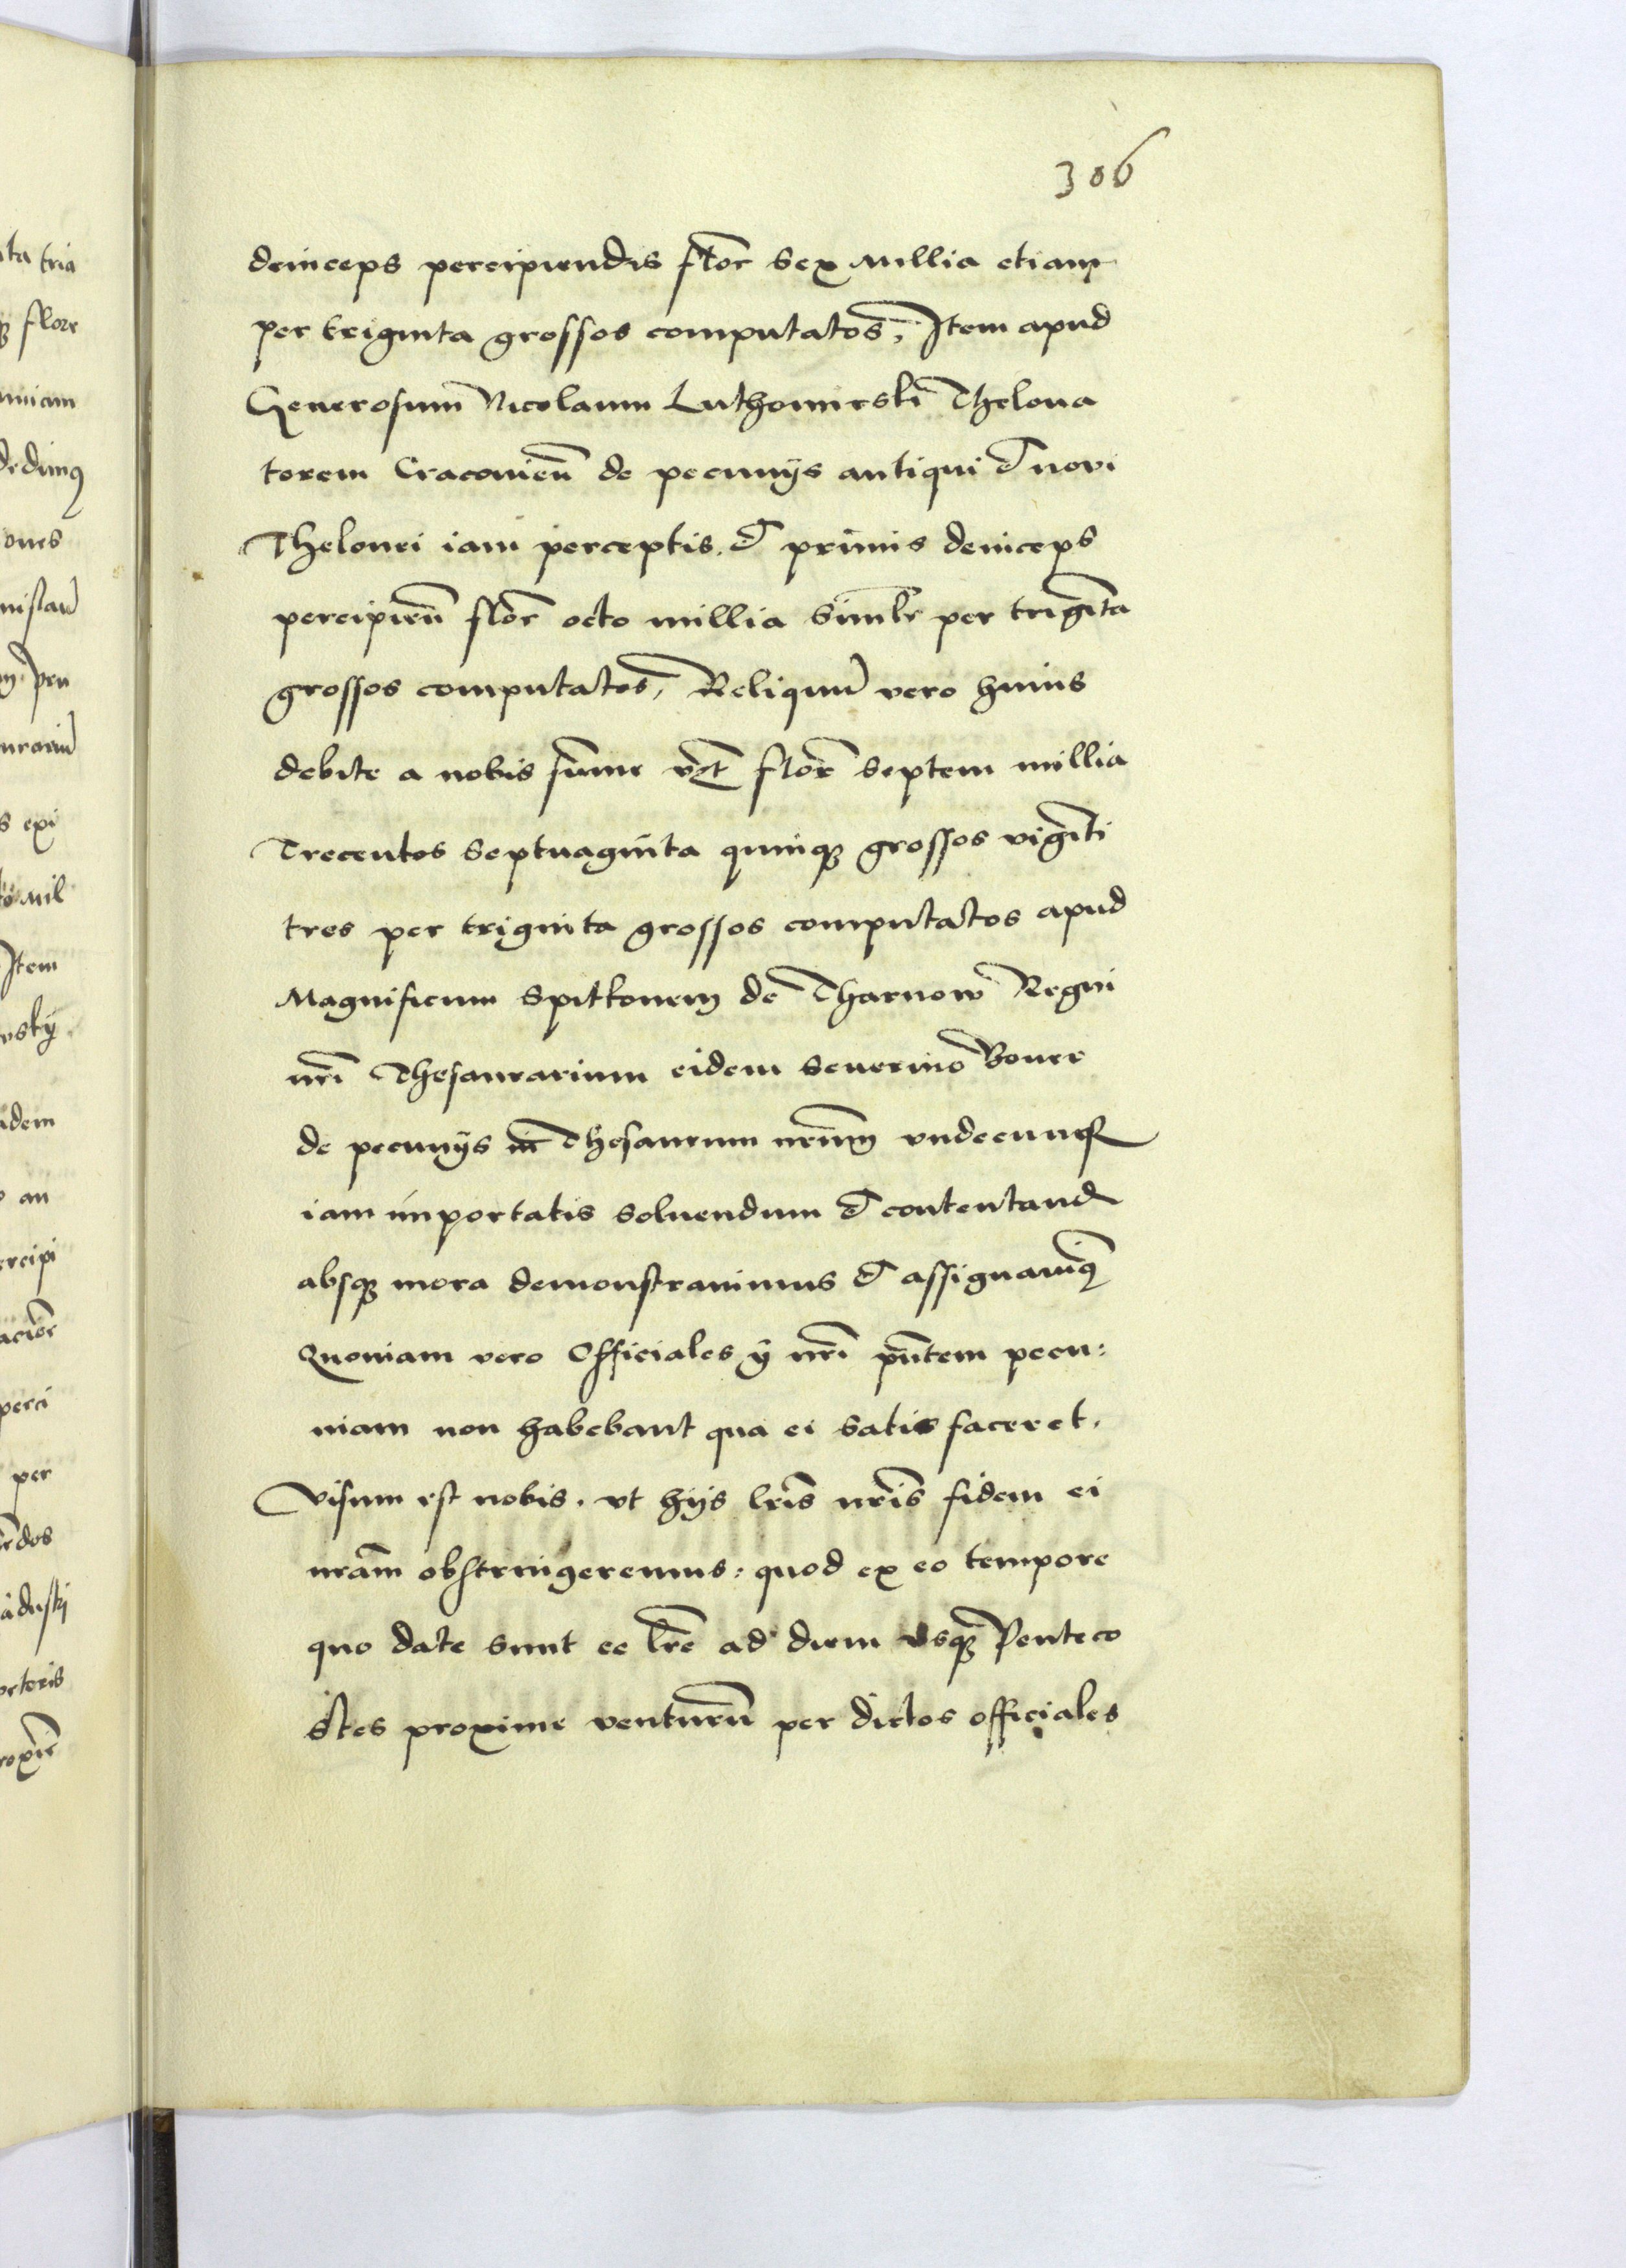 306
deinceps percipiendis flor̄ sex millia etiam
per triginta grossos computatos, Item apud
Generosum Nicolaum Luthomirski Thelona
torem Cracovien̄ de pecunijs antiqui et novi
Thelonei iam perceptis. et primis deinceps
percipien̄ flor̄ octo millia simlr̄ per triginta
grossos computatos, Reliquū vero huius
debite a nobis summe vꝫ flor̄ septem millia
Trecentos septuaginta quinqꝫ grossos viginti
tres per triginta grossos computatos apud
Magnificum Spitkonem de Tharnow Regni
nr̄i Thesaurarium eidem Severino Boner
de pecunijs in Thesaurum nr̄um vndecunqꝫ
iam importatis soluendum et contentand
absqꝫ mora demonstravimus et assignavimꝰ
Quoniam vero Officiales ij nr̄i pn̄tem pecu:
niam non habebant qua ei satis faceret.
Visum est nobis. vt hijs lr̄is nr̄is fidem ei
nr̄am obstringeremus: quod ex eo tempore
quo date sunt ee lr̄e ad diem vsqꝫ Penteco
stes proxime venturū per dictos officiales